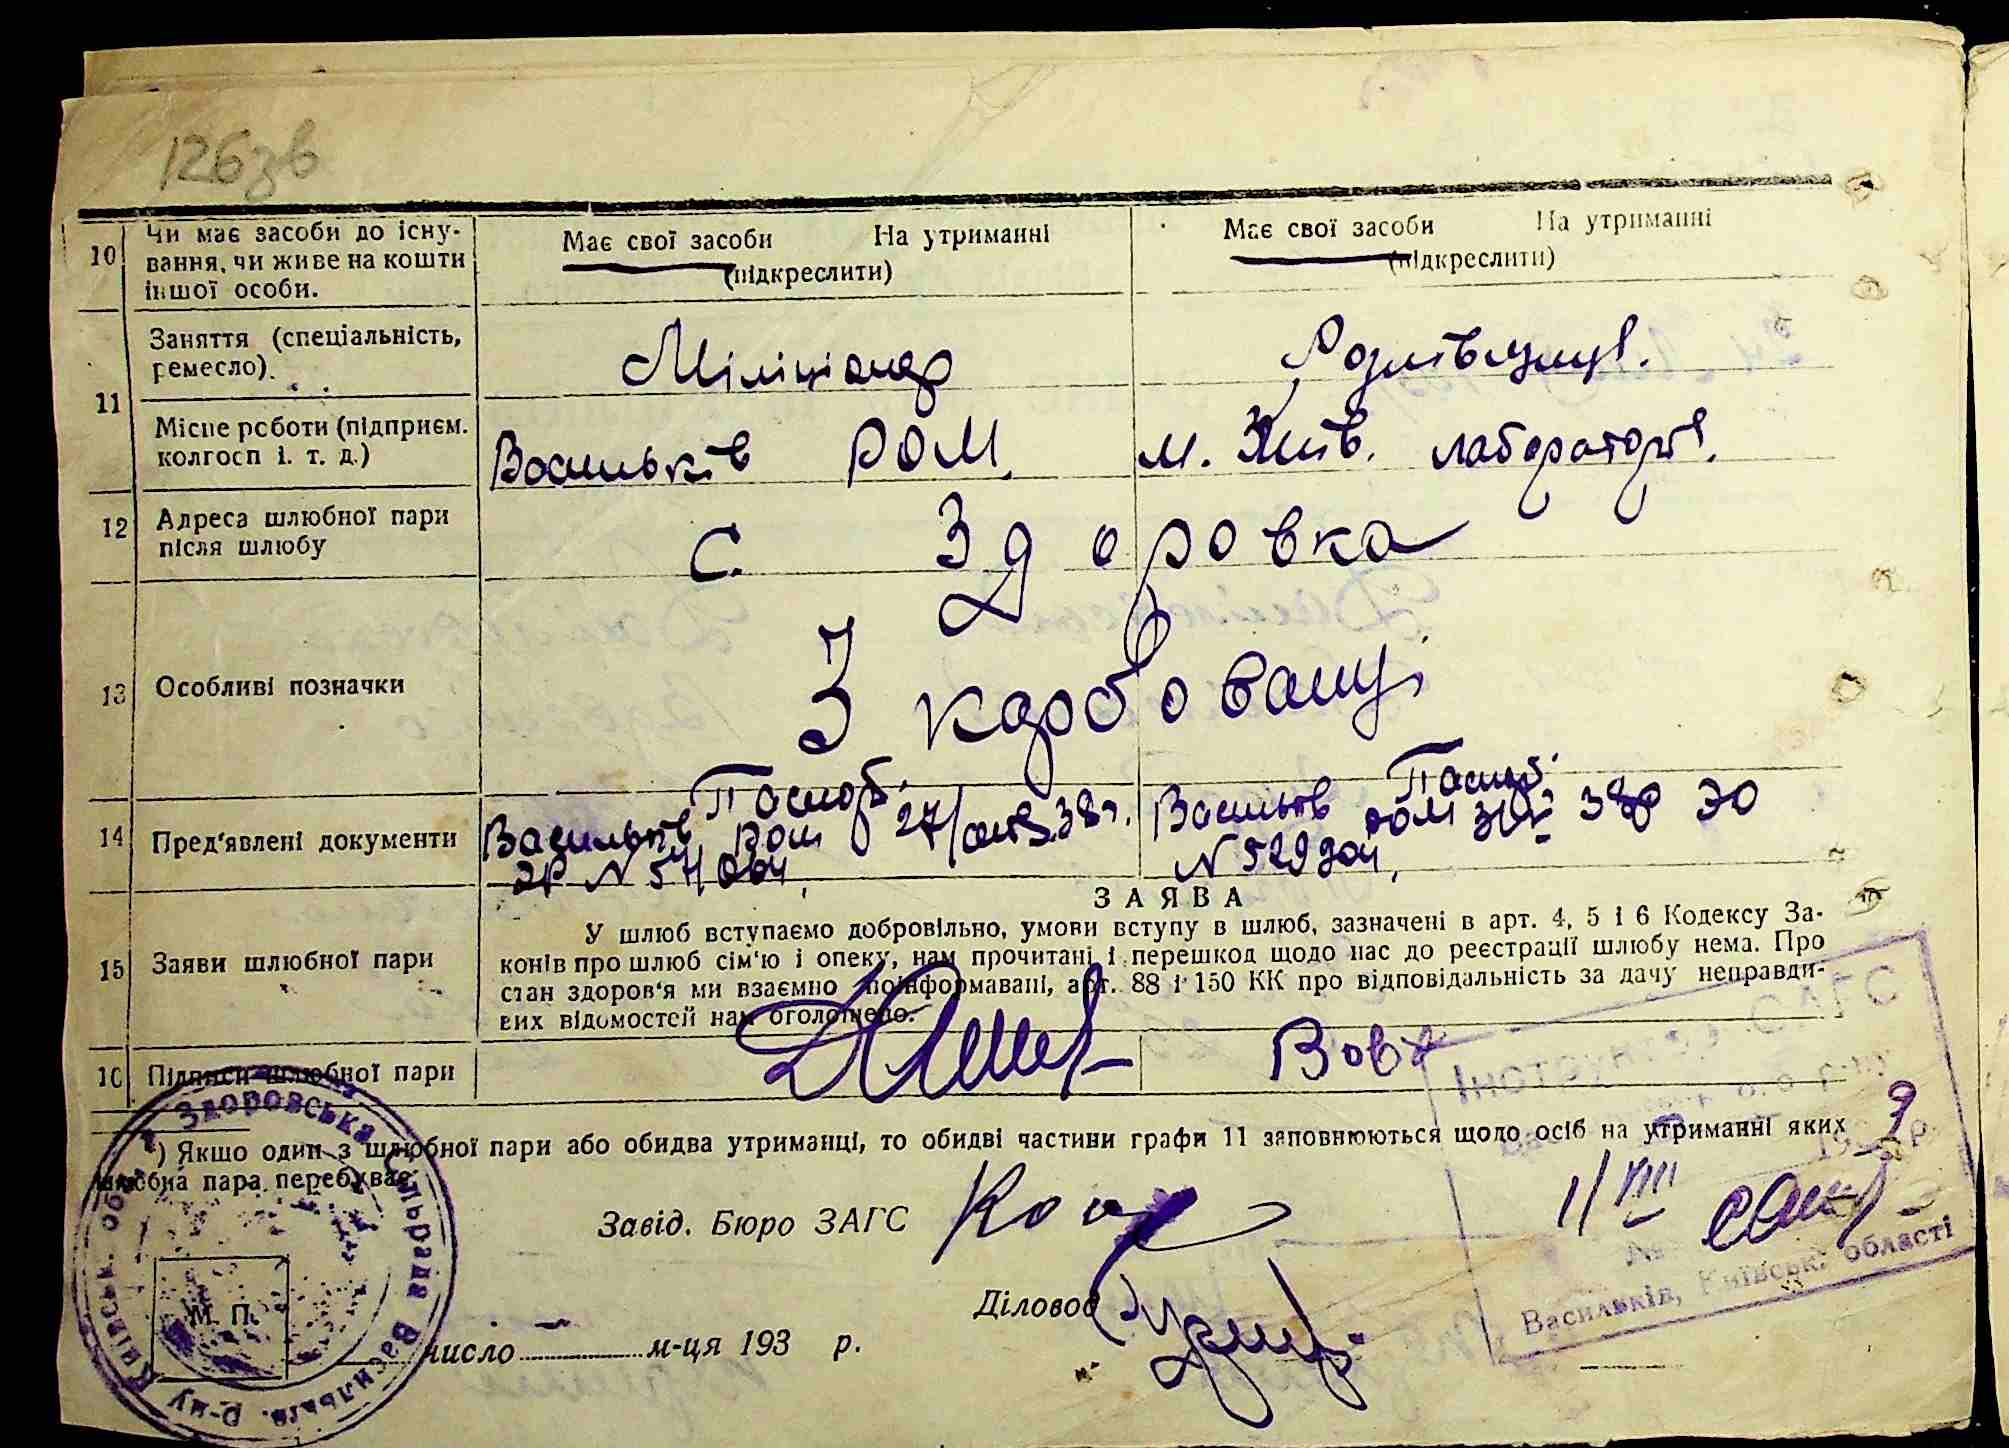 126зв
10 Чи має засоби до існу-
вання, чи живе на кошти
іншої особи.
Має свої засоби На утриманні
(підкреслити)
Має свої засоби На утриманні
(підкреслити)
11 Заняття (спеціальність,
ремесло).
Міліціонер
Місце роботи (підприєм.
колгосп і. т. д.)
Васильків РОМ.
м. Київ. лабораторія.
12 Адреса шлюбної пари
після шлюбу
С. Здоровка
13 Особливі позначки
З карбованці
14 Пред'явлені документи
Паспорт.
Васильків РОМ 27/ 38р.
ЭР N 541064
Паспорт.
Васильків РОМ
N 529304,
ЗАЯВА
15 Заяви шлюбної пари
У шлюб вступаємо добровільно, умови вступу в шлюб, зазначені в арт. 4, 5 і 6 Кодексу За-
конів про шлюб сім'ю і опеку, нам прочитані і перешкод щодо нас до реєстрації шлюбу нема. Про
стан здоров'я ми взаємно поінформавані, арт. 88 і 150 КК про відповідальність за дачу неправди-
вих відомостей нам оголошено.
16 Підписи шлюбної пари
Вовк
*) Якщо один з шлюбної пари або обидва утриманці, то обидві частини графи 11 заповнюються щодо осіб на утриманні яких
шлюбна пара перебуває.
Завід. Бюро ЗАГС
Діловод
М. П.
число м-ця 193 р.
Здоровська Сільрада Васильків. р-ну Київськ. обл.
11/VIII
Васильків, Київськ. області